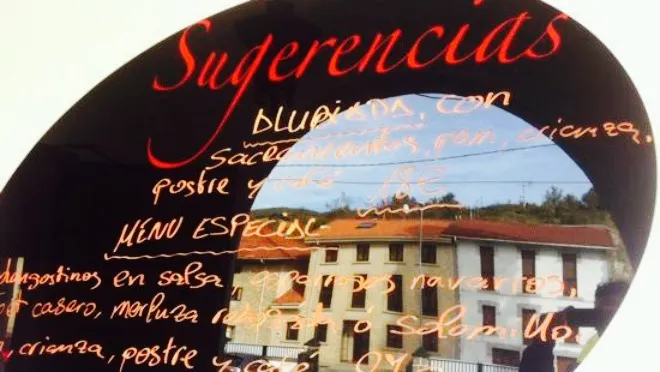 Sugerencias
ALUBIADA, CON
sacramentos, pan, crianza,
postre y café 18€
MENU ESPECIAL
langostinos en salsa, esparragos navarros,
casero, merluza rebozada ó solomillo.
crianza, postre y café